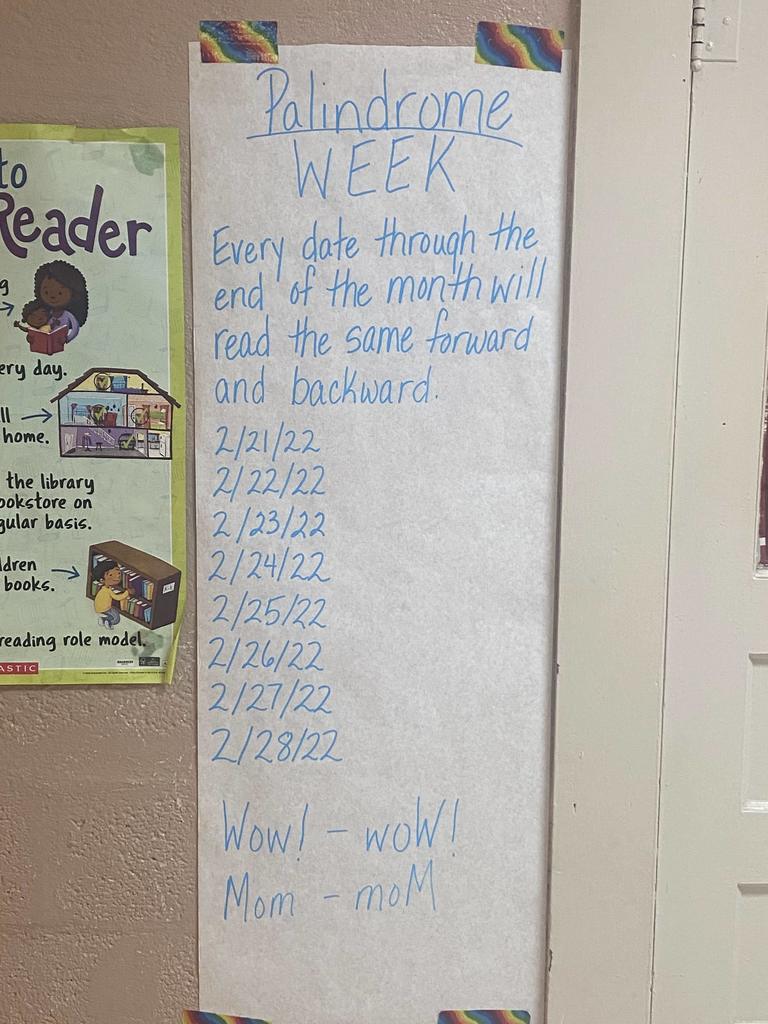 to
Reader
ery day.
ll
home.
the library
ookstore on
gular basis.
ldren
books.
reading role model.
ASTIC
Palindrome
WEEK
Every date through the
end of the month will
read the same forward
and backward.
2/21/22
2/22/22
2/23/22
2/24/22
2/25/22
2/26/22
2/27/22
2/28/22
Wow! - woW!
Mom - moM